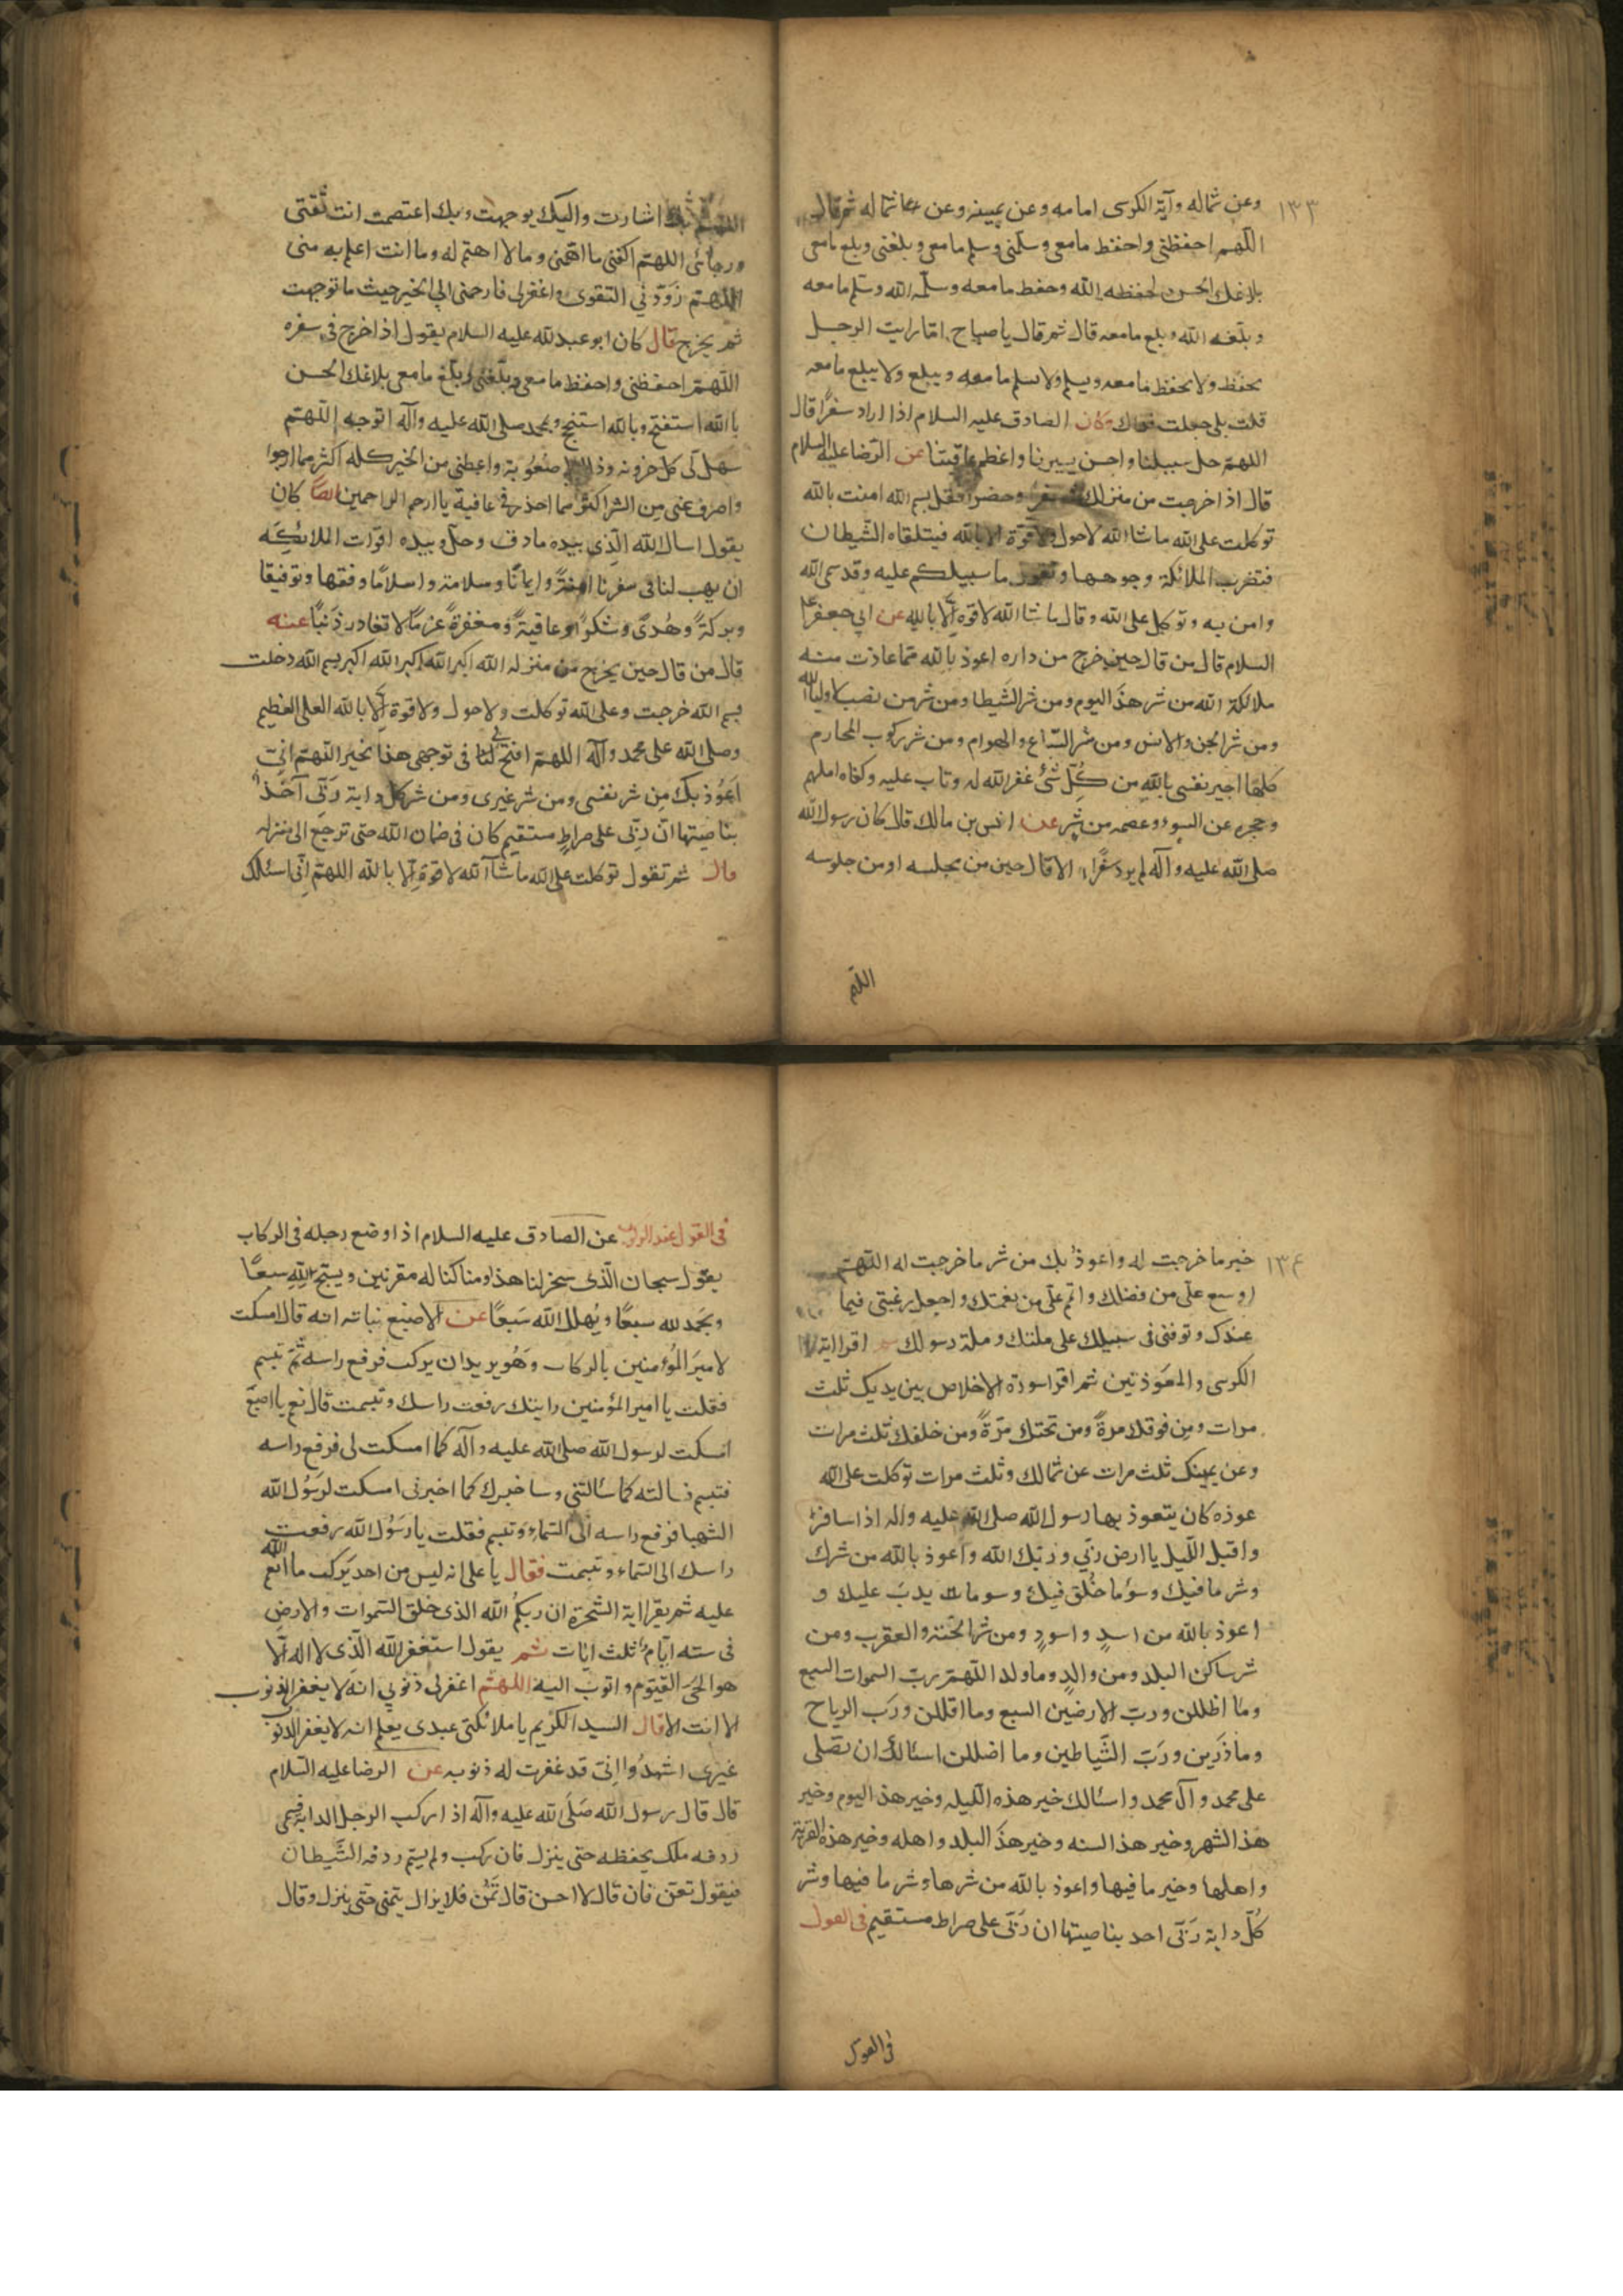 ١٣٣
وعن شماله وآية الكرسى امامه وعن يمينه وعن شماله ثم قال
اللهم احفظنى واحفظ مامعى وسلمنى وسلم مامعى وبلغنى وبلغ مامعى
ببلاغك الحسن لحفظه الله وحفظ مامعه وسلمه الله وسلم مامعه
وبلغه الله وبلغ مامعه قال ثم قال ياصباح اما رايت الرجل
يحفظ ولا يحفظ مامعه ويسلم ولا يسلم مامعه ويبلغ ولا يبلغ مامعه
قلت بلى جعلت فداك وكان الصادق عليه السلام اذا اراد سفرًا قال
اللهم خل سبيلنا واحسن سيرنا واعظم عاقبتنا عن الرضا عليه السلام
قال اذا خرجت من منزلك سفر وحضر فقل بسم الله امنت بالله
توكلت على الله ماشا الله لاحول ولا قوة الا بالله فيتلقاه الشيطان
فتضرب الملائكة وجوهها وتقول ما سبيلكم عليه وقد سمى الله
وامن به وتوكل على الله وقال ماشا الله لاقوه الا بالله عن ابي جعفر عليه
السلام قال من قال حين خرج من داره اعوذ بالله مما عاذت منه
ملائكة الله من شر هذا اليوم ومن شر الشيطا ومن شر من نصب لاوليا الله
ومن شر الجن والانس ومن شر السباع والهوام ومن شر ركوب المحارم
كلها اجير نفسى بالله من كل شئ غفر الله له وتاب عليه وكفاه املهم
وحجره عن السوء وعصمه من شر عن انس بن مالك قال كان رسول الله
صلى الله عليه وآله لم يرد سفرًا الا قال حين من مجلسه او من جلوسه
اللهم
اللهم بك انتشارت واليك توجهت وبك اعتصمت انت ثقتى
ورجائى اللهم اكفنى ما اهمنى وما لا اهتم له وما انت اعلم به منى
اللهم زودني التقوى واغفرلى فارحمنى الى الخير حيث ما توجهت
ثم يخرج قال كان ابو عبد لله عليه السلام يقول اذ اخرج فى سفره
اللهم احفظنى واحفظ مامعى وبلغنى وبلغ مامعى ببلاغك الحسن
بالله استفتح وبالله استنجح وبمحمد صلى الله عليه وآله اتوجه اللهم
سهل لى كل حزونه وذلل صعوبة واعطنى من الخير كله اكثر مما ارجوا
واصرف عنى من الشر اكثر مما احذر فى عافية يا ارحم الراحمين ايضًا كان
يقول اسال الله الذى بيده مادق وجل وبيده اقوات الملائكه
ان يهب لنا فى سفرنا امنةً وايمانًا وسلامة واسلامًا وفقها وتوفيقا
وبركةً وهُدىً وشكرًا وعافيةً ومغفرةً عزمًا لا تغادر ذنبًا عنه
قال من قال حين يخرج من منزله الله اكبر الله اكبر الله اكبر بسم الله دخلت
بسم الله خرجت وعلى الله توكلت ولاحول ولا قوة الا بالله العلى العظيم
وصلى الله على محمد وآله اللهم افتح لنا فى توجهى هذا بخير اللهم انى
اعوذ بك من شر نفسى ومن شر غيرى ومن شر كل دابة ربى آخذ
بناصيتها ان ربى على صراط مستقيم كان فى ضمان الله حتى ترجع الى منزله
قال ثم تقول توكلت على الله ماشاء الله لا قوة الا بالله اللهم انى اسئلك
١٣٤
خير ما خرجت له واعوذ بك من شر ما خرجت له اللهم
اوسع على من فضلك واتم على من نعمتك واجعل رغبتى فيما
عندك وتوفنى فى سبيلك على ملتك وملة رسولك اقرا اية
الكرسى والمعوذتين ثم اقرا سورة الاخلاص بين يديك ثلث
مرات ومن فوقك مرةً ومن تحتك مرةً ومن خلفك ثلث مرات
وعن يمينك ثلث مرات عن شمالك وثلث مرات توكلت على الله
عوذه كان يتعوذ بها رسول الله صلى الله عليه واله اذا سافر
واقبل الليل يا ارض ربى وربك الله واعوذ بالله من شرك
وشر مافيك وسؤ ما خلق فيك وسو مات يدب عليك و
اعوذ بالله من اسدٍ واسودٍ ومن شر الحية والعقرب ومن
شر ساكن البلد ومن والدٍ وما ولد اللهم رب السموات السبع
وما اظللن ورب الارضين السبع وما اقللن ورب الرياح
وما ذرين ورب الشياطين وما اضللن اسئالك ان تصلى
على محمد وآل محمد واسئالك خير هذه الليله وخير هذ اليوم وخير
هذ الشهر وخير هذ السنه وخير هذ البلد واهله وخير هذه القرية
واهلها وخير ما فيها واعوذ بالله من شرها وشر ما فيها وشر
كل دابة ربى احد بناصيتها ان ربى على صراط مستقيم فى القول
فى القول
فى القول عند الركوب عن الصادق عليه السلام اذا وضع رجله فى الركاب
يقول سبحان الذى سخر لنا هذا وما كنا له مقرنين ويسبح لله سبعًا
ويحمد لله سبعًا ويهلل الله سبعًا عن الاصبغ نباته انه قال امسكت
لامير المؤمنين بالركاب وهو يريد ان يركب فرفع راسه ثم تبسم
فقلت يا امير المؤمنين رايتك رفعت راسك وتبسمت قال نعم يا اصبغ
امسكت لرسول الله صلى الله عليه وآله كما امسكت لى فرفع راسه
فتبسم فسالته كما سئالتنى وساخبرك كما اخبرنى امسكت لرسول الله
الشهبا فرفع راسه الى السماء وتبسم فقلت يا رسول الله رفعت
راسك الى السماء وتبسمت فقال يا على انه ليس من احد يركب ما انعم الله
عليه ثم يقرا اية السخرة ان ربكم الله الذى خلق السموات والارض
فى سته ايام ثلث ايات ثم يقول استغفر الله الذى لا اله الا
هو الحى القيوم واتوب اليه اللهم اغفر لى ذنوبي انه لا يغفر الذنوب
الا انت الا قال السيد الكريم يا ملائكتى عبدى يعلم انه لا يغفر الذنوب
غيرى اشهدوا انى قد غفرت له ذنوبه عن الرضا عليه السلام
قال قال رسول الله صلى الله عليه وآله اذ اركب الرجل الدابة فسمى
ردفه ملك يحفظه حتى ينزل فان ركب ولم يسم ردفه الشيطان
فيقول تغن فان قال لا احسن قال تمن فلا يزال يتمنى حتى ينزل وقال